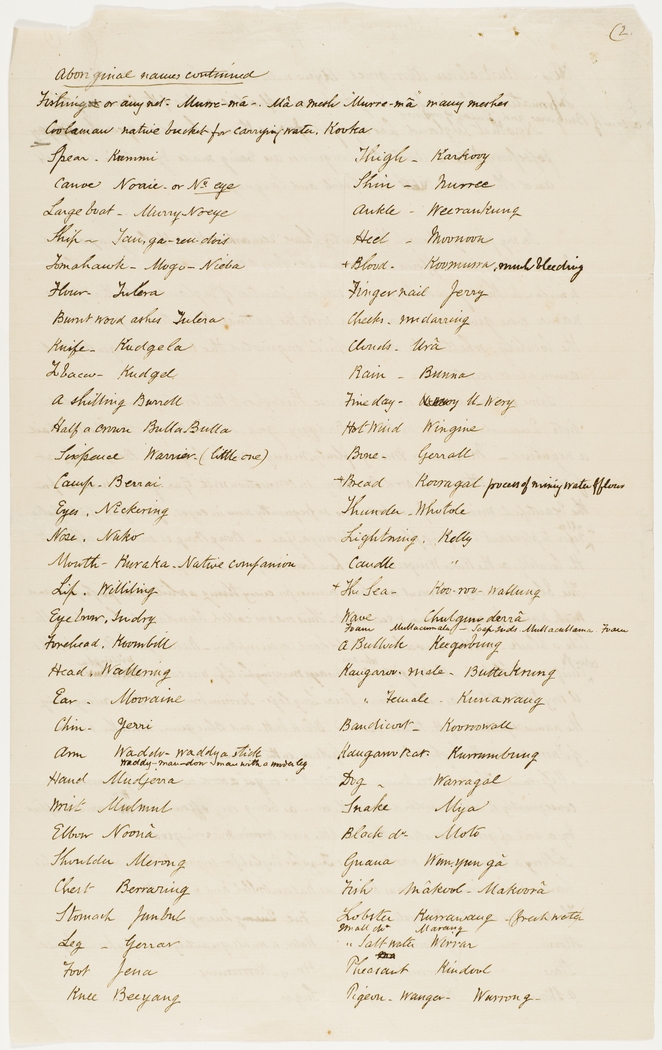 (2.
Aboriginal names continued
Fishing or any net - Murre-mâ -. Mâ a mesh Murre-mâ many meshes
Coolaman native bucket for carrying water. Kooka
Spear - Kummi
Canoe Noaie - or No eye
Large boat - Murry Noeye
Ship -
Tomahawk - Mogo - Nieba
Flour - Tulera
Burnt wood ashes Tulera
Knife - Kudgela
Tobacco - Kudgel
A shilling Burrell
Half a crown Bulla Bulla
Sixpence Warrier - (little one)
Camp - Berrai
Eyes. Nickering
Nose. Nuko
Mouth - Kuraka - Native companion
Lip. Williling
Eye brow. Indry
Forehead. Koombell
Head. Wallering
Ear - Mooraine
Chin - Yerri
Arm Waddw - waddy a stick
waddy-man-dow man with a wooden leg
Hand Mudjerra
Wrist Mulmul
Elbow Noonà
Shoulder Merong
Chest Berraring
Stomach Junbul
Leg - Yerrar
Foot Jena
Knee Beeyang
Thigh - Karkooy
Shin - Nurree
Ankle - Weerankung
Heel - Moonoon
+ Blood - Koomurra, much bleeding
Finger nail Jerry
Cheeks - mudarring
Clouds - Urà
Rain - Bunna
Fine day - U-Wery
Hot Wind Wingine
Bone - Gerrall
+ Bread Kooragal process of mixing water & flour
Thunder - Whotole
Lightning. Kelly
Candle "
+ The Sea - Koo-roo-wallung
Wave Chulgun derrà
Foam - Soap suds Mullacullama. Foam
A Bullock Keegerbung
Kangaroo - male - Butterkrung
" Female - Kunawang
Bandicoot - Kooroowall
Kangaroo Rat. Kurrumbung
Dog - Warragal
Snake Mya
Black do Moto
Guana Wunyungà
Fish Mâkool - Makoorà
Lobster Kurrawang (fresh water
Small do Marang
" Salt water Wirrar
Pheasant Kindool
Pigeon - Wanger - Wurrong -